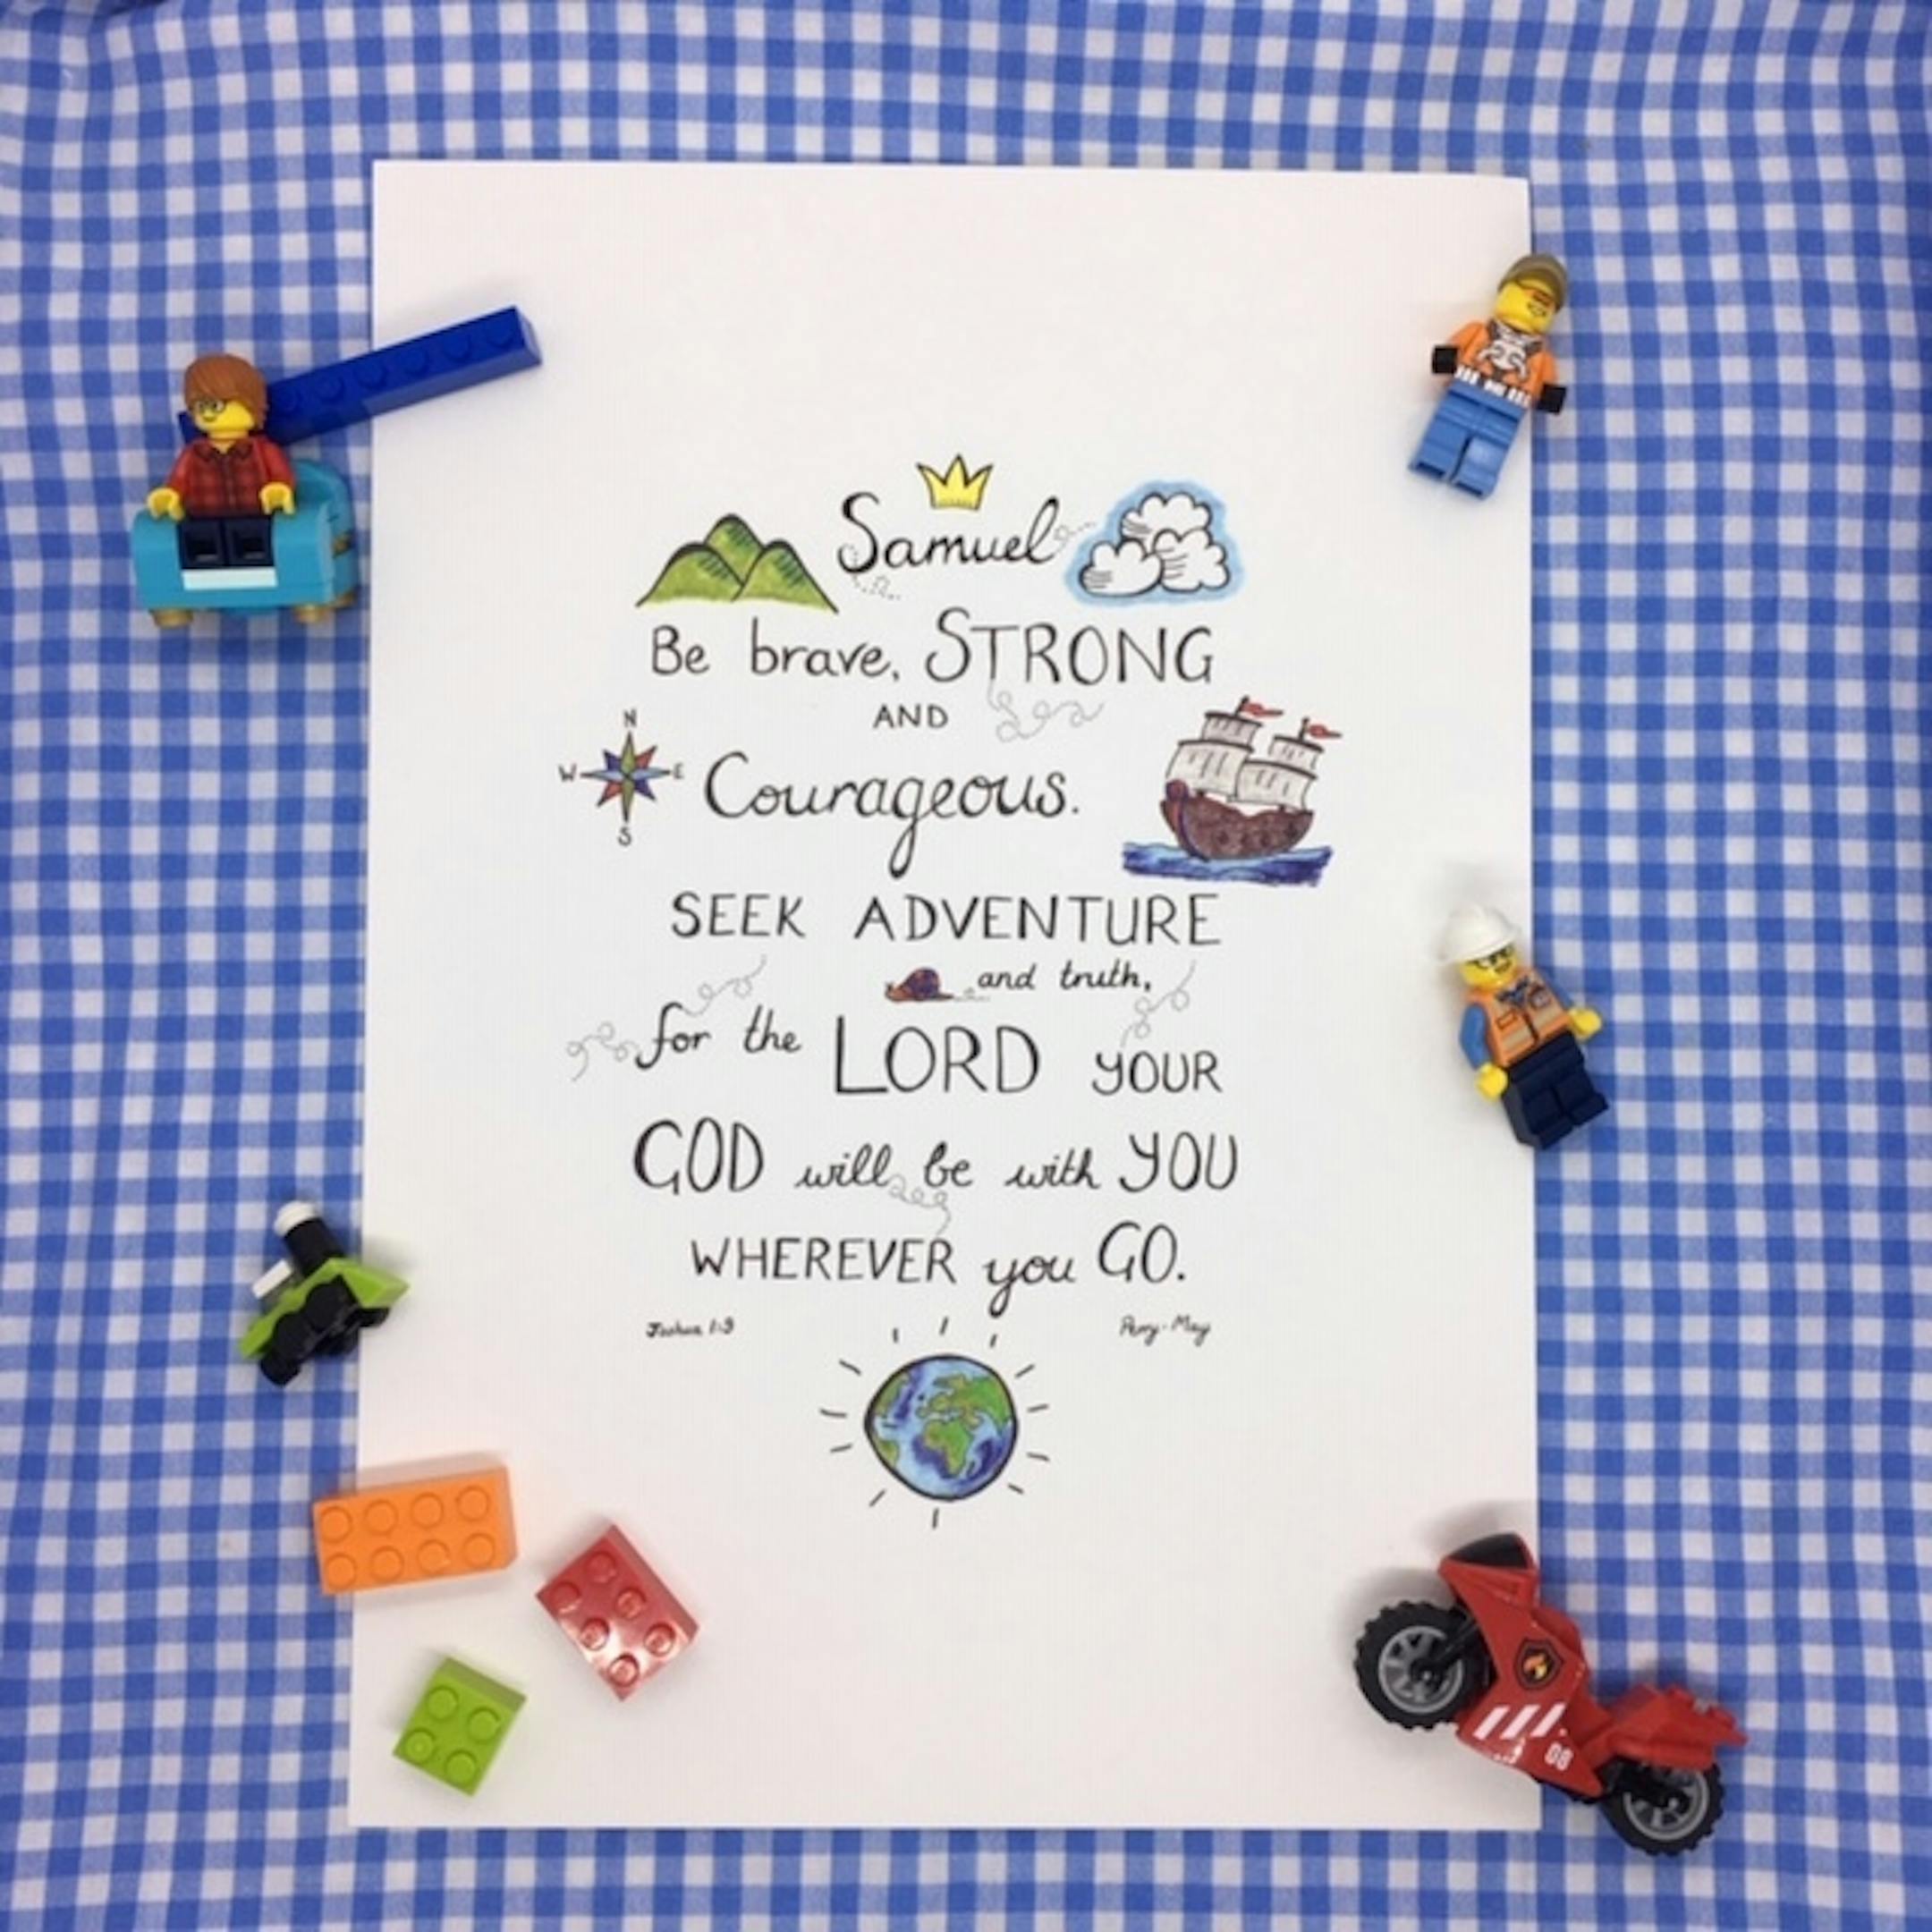 Samuel
Be brave, STRONG
AND
N
W E
S
Courageous.
SEEK ADVENTURE
and truth,
for the LORD YOUR
GOD will be with YOU
WHEREVER you GO.
Joshua 1:9